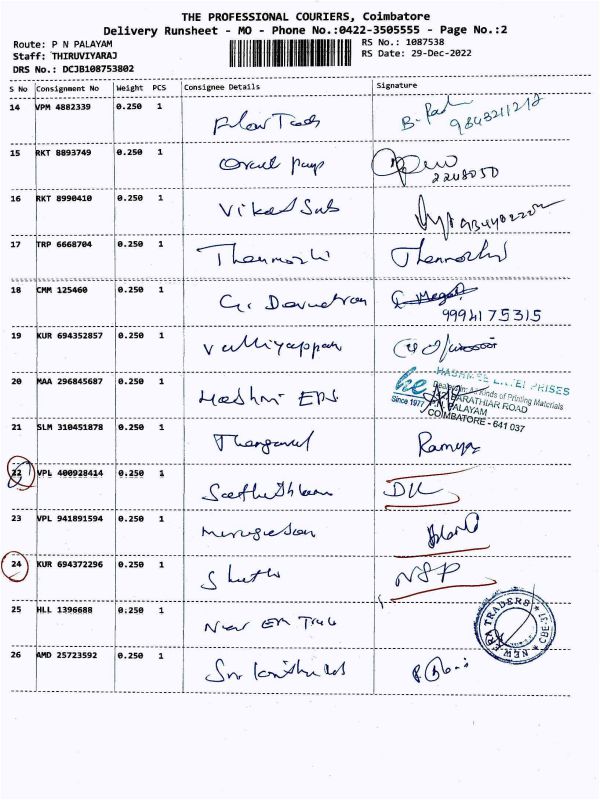 THE PROFESSIONAL COURIERS, Coimbatore
Delivery Runsheet - MO - Phone No.:0422-3505555 - Page No.:2
Route: P N PALAYAM
Staff: THIRUVIYARAJ
DRS No.: DCJB108753802
RS No.: 1087538
RS Date: 29-Dec-2022
S No Consignment No Weight PCS Consignee Details Signature
14 VPM 4882339 0.250 1
9843211212
15 RKT 8893749 0.250 1
2248050
16 RKT 8990410 0.250 1 Vikas Sub
17 TRP 6668704 0.250 1 Thermozhi Thermozhi
18 CMM 125460 0.250 1
9994175315
19 KUR 694352857 0.250 1 Valliyappan
20 MAA 296845687 0.250 1 Hashmi EPS
ENTERPRISES
Dealers in: All Kinds of Printing Materials
BARATHIAR ROAD
PALAYAM
COIMBATORE - 641 037
he
Since 1977
21 SLM 310451878 0.250 1 Thangavel Ramya
22 VPL 400928414 0.250 1
23 VPL 941891594 0.250 1 Murugesan
24 KUR 694372296 0.250 1 NSP
25 HLL 1396688 0.250 1 New ERA Trade
NEW ERA TRADERS
26 AMD 25723592 0.250 1